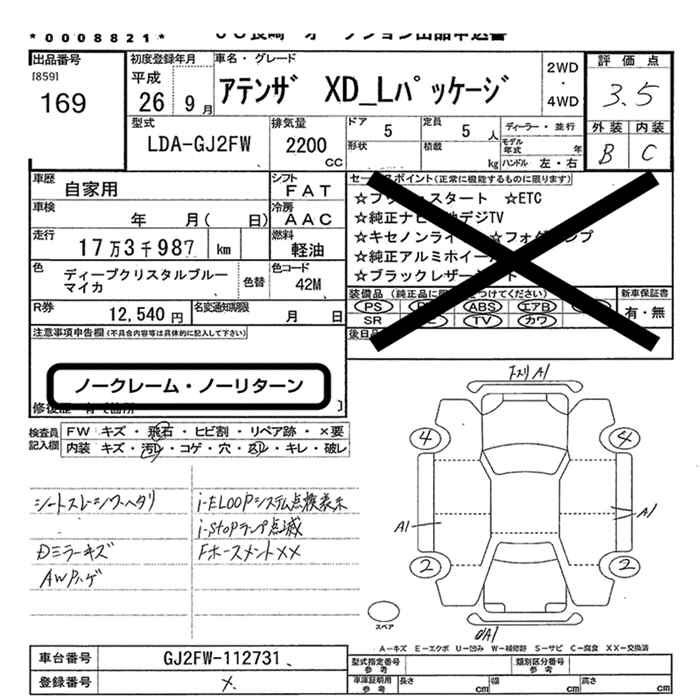 *0008821*
出品番号
[859]
169
初度登録年月
平成
26 9月
車名・グレード
アテンザ XD_Lパッケージ
2WD
・
4WD
評価点
3.5
外装 内装
B C
型式
LDA-GJ2FW
排気量
2200
cc
ドア 5
形状
定員 5 人
積載 kg
ディーラー・並行
モデル年式 年
ハンドル 左・右
車歴 自家用
シフト FAT
車検 年 月( 日)
冷房 AAC
走行 17万3千987 km
燃料 軽油
色 ディープクリスタルブルー
マイカ
色替
色コード 42M
R券 12,540円
名変通知期限 月 日
セールスポイント(正常に機能するものに限ります)
☆プッシュスタート ☆ETC
☆純正ナビ 地デジTV
☆キセノンライ ☆フォグランプ
☆純正アルミホイール
☆ブラックレザーシート
装備品(純正品に つけてください)
PS ABS エアB
SR TV カワ
新車保証書
有・無
後日
注意事項申告欄(不具合内容等は具体的に記入して下さい)
ノークレーム・ノーリターン
検査員
記入欄
FW キズ・飛石・ヒビ割・リペア跡・×要
内装 キズ・汚レ・コゲ・穴・凹レ・キレ・破レ
シートスレ シワ ヘタリ
i-ELOOPシステム点検表示
i-stopランプ点滅
Dミラーキズ
Fホースメント××
AWハゲ
A1
4 4
A1 A1
2 2
スペア
A1
A-キズ E-エクボ U-凹み W-補修跡 S-サビ C-腐食 XX-交換済
車台番号 GJ2FW-112731
登録番号 ×
型式指定番号
参考
類別区分番号
参考
車庫証明用
参考
長さ cm
幅 cm
高さ cm